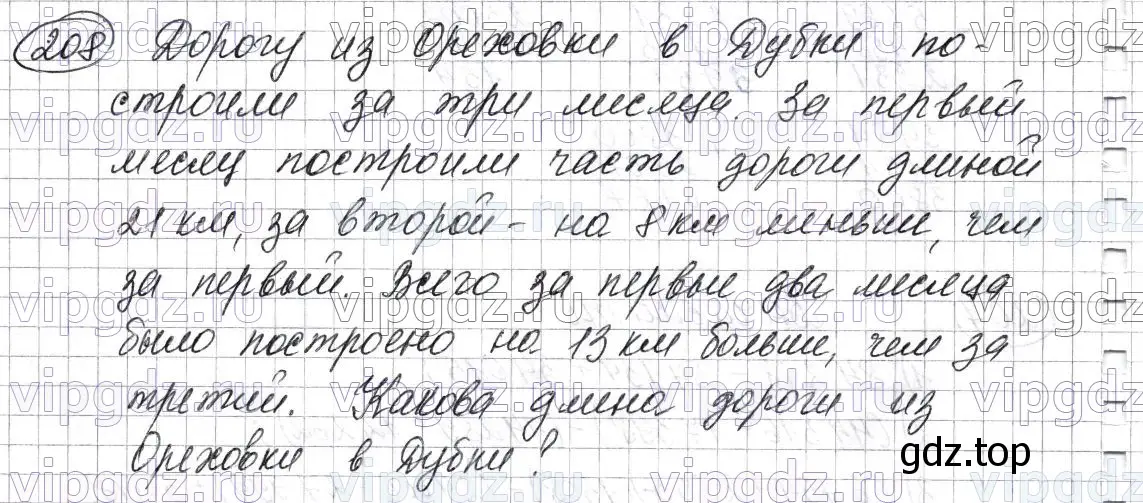 208 Дорогу из Ореховки в Дубки по-
строили за три месяца. За первый
месяц построили часть дороги длиной
21 км, за второй - на 8 км меньше, чем
за первый. Всего за первые два месяца
было построено на 13 км больше, чем за
третий. Какова длина дороги из
Ореховки в Дубки?
gdz.top